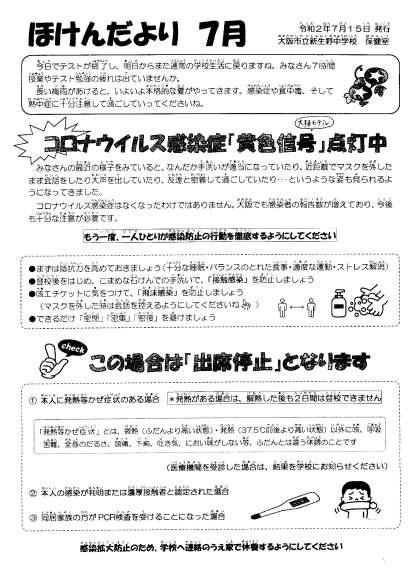 ほけんだより 7月
令和2年7月15日 発行
大阪市立新生野中学校 保健室
今日でテストが終了し、明日からまた通常の学校生活に戻りますね。みなさん7時間
授業やテスト勉強の疲れは出ていませんか。
長い梅雨があけると、いよいよ本格的な夏がやってきます。感染症や食中毒、そして
熱中症に十分注意して過ごしていってくださいね。
大阪モデル
コロナウイルス感染症「黄色信号」点灯中
みなさんの最近の様子をみていると、なんだか手洗いが適当になっていたり、近距離でマスクを外した
まま会話をしたり大声を出していたり、友達と密着して過ごしていたり…というような姿も見られるよ
うになってきました。
コロナウイルス感染症はなくなったわけではありません。大阪でも感染者の報告数が増えており、今後
も十分な注意が必要です。
もう一度、一人ひとりが感染防止の行動を徹底するようにしてください
●まずは抵抗力を高めておきましょう(十分な睡眠・バランスのとれた食事・適度な運動・ストレス解消)
●登校後をはじめ、こまめな石けんでの手洗いで、「接触感染」を防止しましょう
●咳エチケットに気をつけて、「飛沫感染」を防止しましょう
(マスクを外した時は会話を控えるようにしてくださいね)
●できるだけ「密閉」「密集」「密接」を避けましょう
check
この場合は「出席停止」となります
① 本人に発熱等かぜ症状のある場合 *発熱がある場合は、解熱した後も2日間は登校できません
「発熱等かぜ症状」とは、微熱(ふだんより高い状態)・発熱(37.5℃前後より高い状態)以外に咳、呼吸
困難、全身のだるさ、頭痛、下痢、吐き気、におい味がしない等、ふだんとは違う体調のことです
(医療機関を受診した場合は、結果を学校にお知らせください)
② 本人の感染が判明または濃厚接触者と認定された場合
③ 同居家族の方がPCR検査を受けることになった場合
感染拡大防止のため、学校へ連絡のうえ家で休養するようにしてください